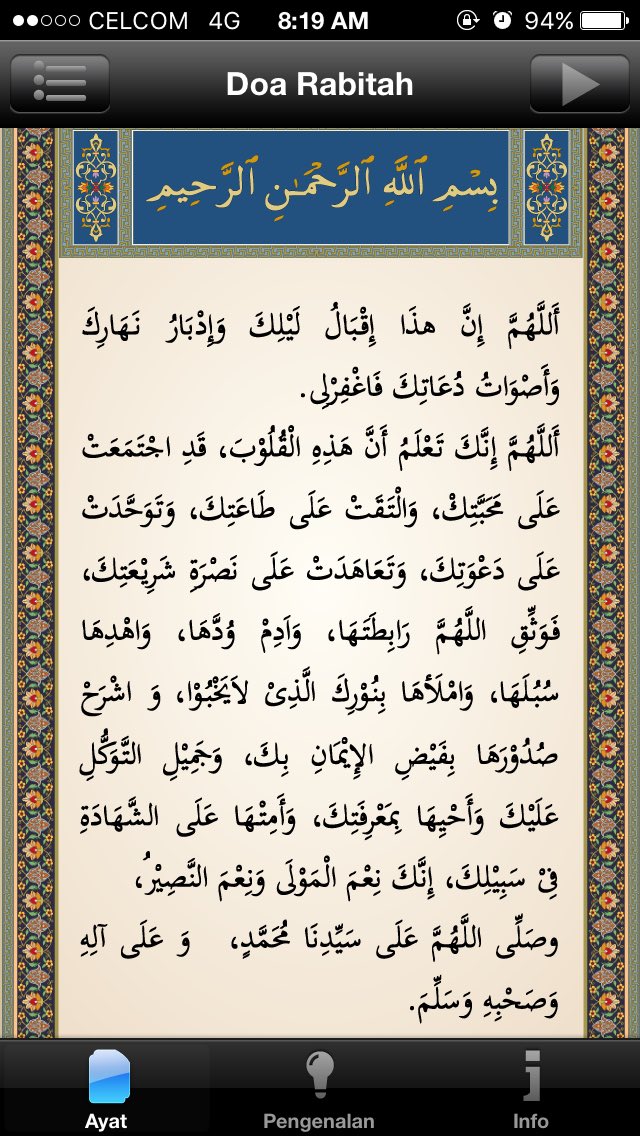 CELCOM 4G 8:19 AM 94%
Doa Rabitah
بِسْمِ ٱللَّهِ ٱلرَّحْمَـٰنِ ٱلرَّحِيمِ
أَللَّهُمَّ إِنَّ هذَا إِقْبَالُ لَيْلِكَ وَإِدْبَارُ نَهَارِكَ
وَأَصْوَاتُ دُعَاتِكَ فَاغْفِرْلِى.
أَللَّهُمَّ إِنَّكَ تَعْلَمُ أَنَّ هَذِهِ الْقُلُوْبَ، قَدِ اجْتَمَعَتْ
عَلَى مَحَبَّتِكْ، وَالْتَقَتْ عَلَى طَاعَتِكَ، وَتَوَحَّدَتْ
عَلَى دَعْوَتِكَ، وَتَعَاهَدَتْ عَلَى نَصْرَةِ شَرِيْعَتِكَ،
فَوَثِّقِ اللَّهُمَّ رَابِطَتَهَا، وَاَدِمْ وُدَّهَا، وَاهْدِهَا
سُبُلَهَا، وَامْلَأْهَا بِنُوْرِكَ الَّذِىْ لاَيَخْبُوْا، وَ اشْرَحْ
صُدُوْرَهَا بِفَيْضِ الإِيْمَانِ بِكَ، وَجَمِيْلِ التَّوَكُّلِ
عَلَيْكَ وَأَحْيِهَا بِمَعْرِفَتِكَ، وَأَمِتْهَا عَلَى الشَّهَادَةِ
فِىْ سَبِيْلِكَ، إِنَّكَ نِعْمَ الْمَوْلَى وَنِعْمَ النَّصِيْرُ،
وصَلِّى اللَّهُمَّ عَلَى سَيِّدِنَا مُحَمَّدٍ، وَ عَلَى آلِهِ
وَصَحْبِهِ وَسَلِّمَ.
Ayat
Pengenalan
Info